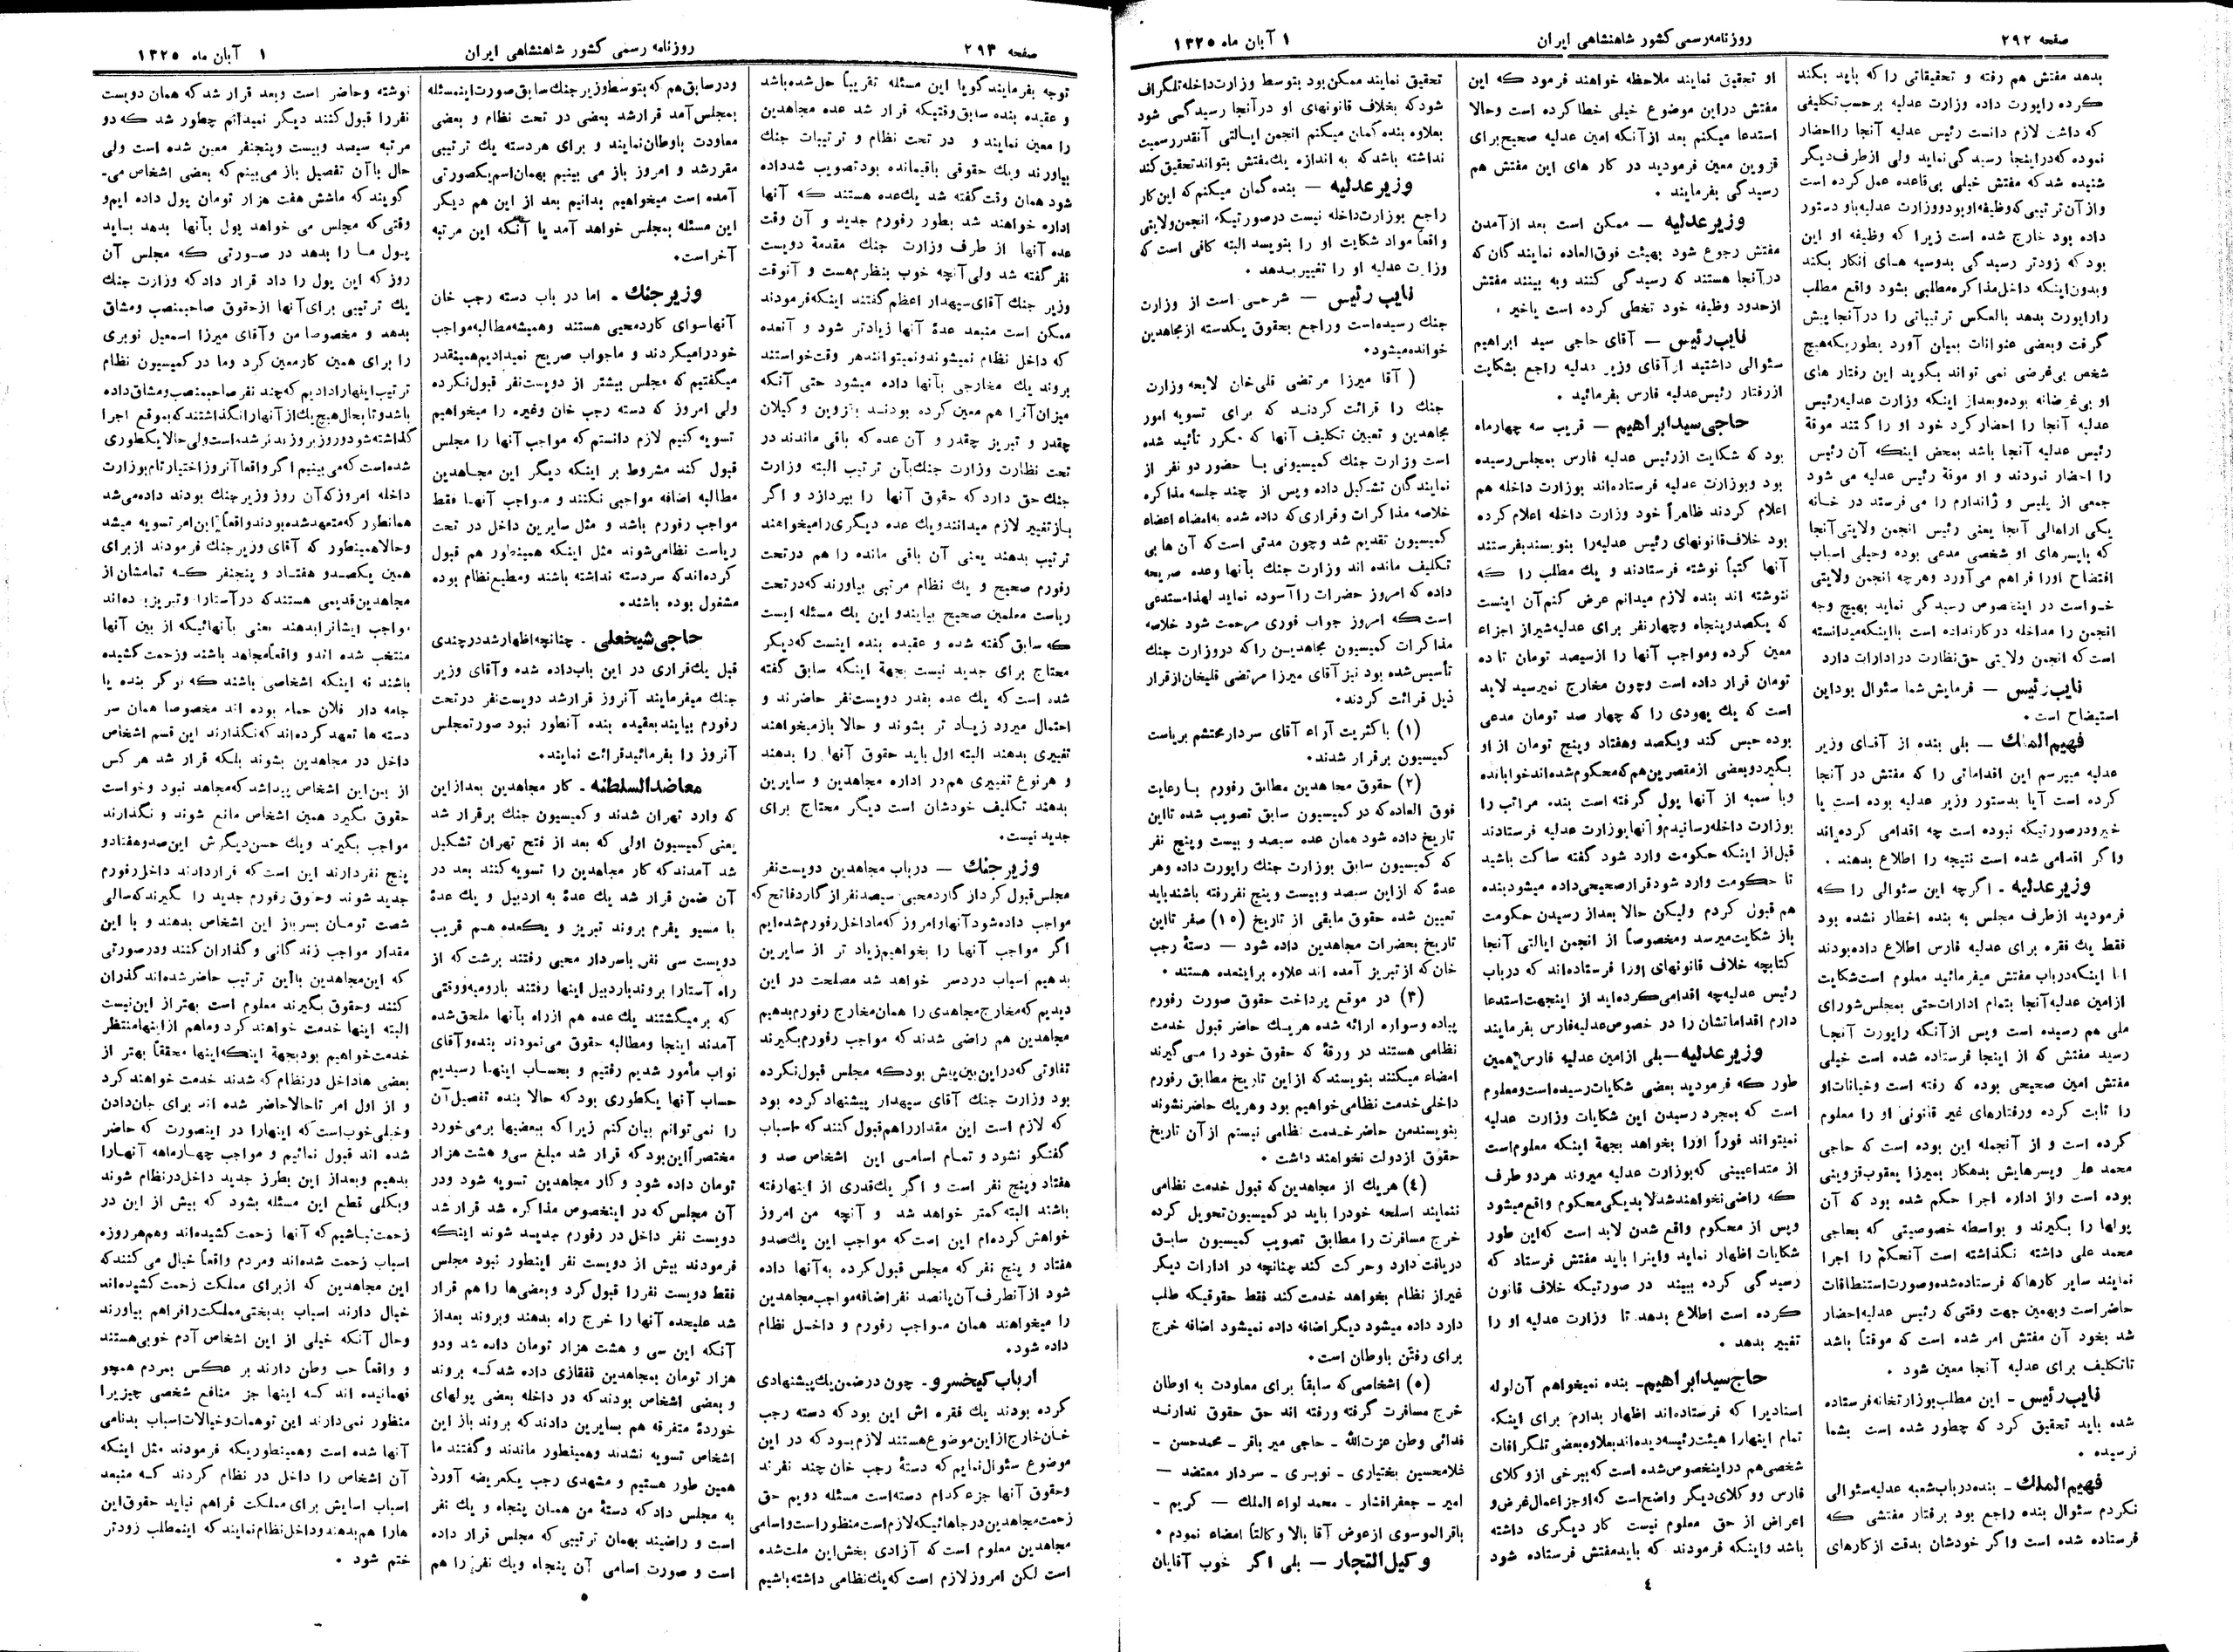 صفحه ۲۹۲
روزنامه رسمی کشور شاهنشاهی ایران
۱ آبان ماه ۱۳۲۵
بدهد مفتش هم رفته و تحقیقاتی را که باید بکند
کرده راپورت داده وزارت عدلیه برحسب تکلیفی
که داشت لازم دانست رئیس عدلیه آنجا را احضار
نموده که در اینجا رسیدگی نماید ولی از طرف دیگر
شنیده شد که مفتش خیلی بی‌قاعده عمل کرده است
و از آن ترتیبی که وظیفه او بود و وزارت عدلیه باو دستور
داده بود خارج شده است زیرا که وظیفه او این
بود که زودتر رسیدگی بدوسیه های آنکار بکند
و بدون اینکه داخل مذاکره مطلبی بشود واقع مطلب
را راپورت بدهد بالعکس ترتیباتی را در آنجا پیش
گرفت و بعضی عنوانات بمیان آورد بطوریکه هیچ
شخص بی‌غرضی نمی تواند بگوید این رفتار های
او بی‌غرضانه بوده و بعد از اینکه وزارت عدلیه رئیس
عدلیه آنجا را احضار کرد خود او را گفتند موقة
رئیس عدلیه آنجا باشد بمحض اینکه آن رئیس
را احضار نمودند و او موقة رئیس عدلیه می شود
جمعی از پلیس و ژاندارم را می فرستد در خانه
یکی از اهالی آنجا یعنی رئیس انجمن ولایتی آنجا
که با پسرهای او شخصی مدعی بوده و خیلی اسباب
افتضاح او را فراهم می‌آورد و هر چه انجمن ولایتی
خواست در اینخصوص رسیدگی نماید بهیچ وجه
انجمن را مداخله در کار نداده است با اینکه میدانسته
است که انجمن ولایتی حق نظارت در ادارات دارد
نایب رئیس — فرمایش شما سئوال بود این
استیضاح است.
فهیم الملك — بلی بنده از آقای وزیر
عدلیه میپرسم این اقداماتی را که مفتش در آنجا
کرده است آیا بدستور وزیر عدلیه بوده است یا
خیر و در صورتیکه نبوده است چه اقدامی کرده‌اند
و اگر اقدامی شده است نتیجه را اطلاع بدهند .
وزیر عدلیه ـ اگر چه این سئوالی را که
فرمودید از طرف مجلس به بنده اخطار نشده بود
فقط یك فقره برای عدلیه فارس اطلاع داده بودند
اما اینکه در باب مفتش میفرمائید معلوم است شکایت
از امین عدلیه آنجا بتمام ادارات حتی بمجلس شورای
ملی هم رسیده است و پس از آنکه راپورت آنجا
رسید مفتش که از اینجا فرستاده شده است خیلی
مفتش امین صحیحی بوده که رفته است و خیانات او
را ثابت کرده و رفتارهای غیر قانونی او را معلوم
کرده است و از آنجمله این بوده است که حاجی
محمد علی و پسرهایش بدهکار بمیرزا یعقوب قزوینی
بوده است و از اداره اجرا حکم شده بود که آن
پولها را بگیرند و بواسطه خصوصیتی که بحاجی
محمد علی داشته نگذاشته است آنحکم را اجرا
نمایند سایر کارها که فرستاده شده و صورت استنطاقات
حاضر است و بهمین جهت وقتی که رئیس عدلیه احضار
شد بخود آن مفتش امر شده است که موقتاً باشد
تا تکلیف برای عدلیه آنجا معین شود .
نایب رئیس ـ این مطلب بوزارتخانه فرستاده
شده باید تحقیق کرد که چطور شده است بشما
نرسیده .
فهیم الملك ـ بنده در باب شعبه عدلیه سئوالی
نکردم سئوال بنده راجع بود برفتار مفتشی که
فرستاده شده است و اگر خودشان بدقت از کارهای
او تحقیق نمایند ملاحظه خواهند فرمود که این
مفتش در این موضوع خیلی خطا کرده است و حالا
استدعا میکنم بعد از آنکه امین عدلیه صحیح برای
قزوین معین فرمودید در کار های این مفتش هم
رسیدگی بفرمایند .
وزیر عدلیه — ممکن است بعد از آمدن
مفتش رجوع شود بهیئت فوق‌العاده نمایندگان که
در آنجا هستند که رسیدگی کنند و به بینند مفتش
از حدود وظیفه خود تخطی کرده است یا خیر .
نایب رئیس — آقای حاجی سید ابراهیم
سئوالی داشتید از آقای وزیر عدلیه راجع بشکایت
از رفتار رئیس عدلیه فارس بفرمائید .
حاجی سید ابراهیم — قریب سه چهار ماه
بود که شکایت از رئیس عدلیه فارس بمجلس رسیده
بود و بوزارت عدلیه فرستاده‌اند بوزارت داخله هم
اعلام کردند ظاهراً خود وزارت داخله اعلام کرده
بود خلاف قانونهای رئیس عدلیه را بنویسند بفرستند
آنها کتباً نوشته فرستادند و یك مطلب را که
ننوشته اند بنده لازم میدانم عرض کنم آن اینست
که یکصد و پنجاه و چهار نفر برای عدلیه شیراز اجزاء
معین کرده و مواجب آنها را از سیصد تومان تا ده
تومان قرار داده است و چون مخارج نمیرسید لابد
است که یك یهودی را که چهار صد تومان مدعی
بوده حبس کند و یکصد و هفتاد و پنج تومان از او
بگیرد و بعضی از مقصرین هم که محکوم شده‌اند خوابانده
و با سمبه از آنها پول گرفته است بنده مراتب را
بوزارت داخله رسانیدم و آنها بوزارت عدلیه فرستادند
قبل از اینکه حکومت وارد شود گفته ساکت باشید
تا حکومت وارد شود قرار صحیحی داده میشود بنده
هم قبول کردم ولیکن حالا بعد از رسیدن حکومت
باز شکایت میرسد و مخصوصاً از انجمن ایالتی آنجا
کتابچه خلاف قانونهای او را فرستاده‌اند که در باب
رئیس عدلیه چه اقدامی کرده‌اید از اینجهت استدعا
دارم اقداماتشان را در خصوص عدلیه فارس بفرمایند
وزیر عدلیه — بلی از امین عدلیه فارس همین
طور که فرمودید بعضی شکایات رسیده است و معلوم
است که بمجرد رسیدن این شکایات وزارت عدلیه
نمیتواند فوراً او را بخواهد بجهة اینکه معلوم است
از متداعیینی که بوزارت عدلیه میروند هر دو طرف
که راضی نخواهند شد لابد یکی محکوم واقع میشود
و پس از محکوم واقع شدن لابد است که این طور
شکایات اظهار نماید و اینرا باید مفتش فرستاد که
رسیدگی کرده ببیند در صورتیکه خلاف قانون
کرده است اطلاع بدهد تا وزارت عدلیه او را
تغییر بدهد .
حاج سید ابراهیم ـ بنده نمیخواهم آن لوله
اسنادیرا که فرستاده‌اند اظهار بدارم برای اینکه
تمام اینها را هیئت رئیسه دیده‌اند بعلاوه بعضی تلگرافات
شخصی هم در اینخصوص شده است که ببرخی از وکلای
فارس و وکلای دیگر واضح است که او جز اعمال غرض و
اعراض از حق معلوم نیست کار دیگری داشته
باشد و اینکه فرمودند که باید مفتش فرستاده شود
تحقیق نمایند ممکن بود بتوسط وزارت داخله تلگراف
شود که بخلاف قانونهای او در آنجا رسیدگی شود
بعلاوه بنده گمان میکنم انجمن ایالتی آنقدر رسمیت
نداشته باشد که به اندازه یك مفتش بتواند تحقیق کند
وزیر عدلیه — بنده گمان میکنم که این کار
راجع بوزارت داخله نیست در صورتیکه انجمن ولایتی
واقعاً مواد شکایت او را بنویسد البته کافی است که
وزارت عدلیه او را تغییر بدهد .
نایب رئیس — شرحی است از وزارت
جنك رسیده است و راجع بحقوق یکدسته از مجاهدین
خوانده میشود.
( آقا میرزا مرتضی قلی خان لایحه وزارت
جنك را قرائت کردند که برای تسویه امور
مجاهدین و تعیین تکلیف آنها که مکرر تأئید شده
است وزارت جنك کمیسیونی با حضور دو نفر از
نمایندگان تشکیل داده و پس از چند جلسه مذاکره
خلاصه مذاکرات و قراری که داده شده به امضاء اعضاء
کمیسیون تقدیم شد و چون مدتی است که آن ها بی
تکلیف مانده اند وزارت جنك بآنها وعده صریحه
داده که امروز حضرات را آسوده نماید لهذا مستدعی
است که امروز جواب فوری مرحمت شود خلاصه
مذاکرات کمیسیون مجاهدین را که در وزارت جنك
تأسیس شده بود نیز آقای میرزا مرتضی قلیخان از قرار
ذیل قرائت کردند.
(۱) با کثریت آراء آقای سردار محتشم بریاست
کمیسیون برقرار شدند.
(۲) حقوق مجاهدین مطابق رفورم با رعایت
فوق العاده که در کمیسیون سابق تصویب شده تا این
تاریخ داده شود همان عده سیصد و بیست و پنج نفر
که کمیسیون سابق بوزارت جنك راپورت داده و هر
عدة که از این سیصد و بیست و پنج نفر رفته باشند باید
تعیین شده حقوق مابقی از تاریخ (۱۵) صفر تا این
تاریخ بحضرات مجاهدین داده شود — دستهٔ رجب
خان که از تبریز آمده اند علاوه بر اینعده هستند .
(۳) در موقع پرداخت حقوق صورت رفورم
پیاده و سواره ارائه شده هر یك حاضر قبول خدمت
نظامی هستند در ورقهٔ که حقوق خود را می گیرند
امضاء میکنند بنویسند که از این تاریخ مطابق رفورم
داخلی خدمت نظامی خواهیم بود و هر یك حاضر نشوند
بنویسند من حاضر خدمت نظامی نیستم از آن تاریخ
حقوق از دولت نخواهند داشت .
(٤) هر یك از مجاهدین که قبول خدمت نظامی
ننمایند اسلحه خود را باید در کمیسیون تحویل کرده
خرج مسافرت را مطابق تصویب کمیسیون سابق
دریافت دارد و حرکت کند چنانچه در ادارات دیگر
غیر از نظام بخواهد خدمت کند فقط حقوقیکه طلب
دارد داده میشود دیگر اضافه داده نمیشود اضافه خرج
برای رفتن باوطان است.
(۵) اشخاصی که سابقاً برای معاودت به اوطان
خرج مسافرت گرفته و رفته اند حق حقوق ندارند
فدائی وطن عزت‌الله ـ حاجی میر باقر ـ محمد حسن ـ
غلامحسین بختیاری ـ نوبری ـ سردار معتضد —
امیر ـ جعفر افشار ـ محمد لواء الملك — کریم ـ
باقر الموسوی از عوض آقا بالا وکالتاً امضاء نمودم .
وکیل التجار — بلی اگر خوب آقایان
٤
صفحه ۲۹۳
روزنامه رسمی کشور شاهنشاهی ایران
۱ آبان ماه ۱۳۲۵
توجه بفرمایند گویا این مسئله تقریباً حل شده باشد
و عقیده بنده سابق وقتیکه قرار شد عده مجاهدین
را معین نمایند و در تحت نظام و ترتیبات جنك
بیاورند و یك حقوقی باقیمانده بود تصویب شد داده
شود همان وقت گفته شد یك عده هستند که آنها
اداره خواهند شد بطور رفورم جدید و آن وقت
عده آنها از طرف وزارت جنك مقدمة دویست
نفر گفته شد ولی آنچه خوب بنظرم هست و آنوقت
وزیر جنك آقای سپهدار اعظم گفتند اینکه فرمودند
ممکن است منبعد عدهٔ آنها زیادتر شود و آنعده
که داخل نظام نمیشوند و نمیتوانند هر وقت خواستند
بروند یك مخارجی بآنها داده میشود حتی آنکه
میزان آنرا هم معین کرده بودند بقزوین و گیلان
چقدر و تبریز چقدر و آن عده که باقی ماندند در
تحت نظارت وزارت جنك بآن ترتیب البته وزارت
جنك حق دارد که حقوق آنها را بپردازد و اگر
باز تغییر لازم میدانند و یك عده دیگری را میخواهند
ترتیب بدهند یعنی آن باقی مانده را هم در تحت
رفورم صحیح و یك نظام مرتبی بیاورند که در تحت
ریاست معلمین صحیح بیایند و این یك مسئله ایست
که سابق گفته شده و عقیده بنده اینست که دیگر
محتاج برای جدید نیست بجهة اینکه سابق گفته
شده است که یك عده بقدر دویست نفر حاضرند و
احتمال میرود زیاد تر بشوند و حالا باز میخواهند
تغییری بدهند البته اول باید حقوق آنها را بدهند
و هر نوع تغییری هم در اداره مجاهدین و سایرین
بدهند تکلیف خودشان است دیگر محتاج برای
جدید نیست.
وزیر جنك — در باب مجاهدین دویست نفر
مجلس قبول کرد از گارد محیی سیصد نفر از گارد فاتح که
مواجب داده شود آنها و امروز که ما داخل رفورم شده‌ایم
اگر مواجب آنها را بخواهیم زیاد تر از سایرین
بدهیم اسباب دردسر خواهد شد مصلحت در این
دیدیم که مخارج مجاهدی را همان مخارج رفورم بدهیم
مجاهدین هم راضی شدند که مواجب رفورم بگیرند
تفاوتی که در این بین پیش بود که مجلس قبول نکرده
بود وزارت جنك آقای سپهدار پیشنهاد کرده بود
که لازم است این مقدار را هم قبول کنند که اسباب
گفتگو نشود و تمام اسامی این اشخاص صد و
هفتاد و پنج نفر است و اگر یك قدری از اینها رفته
باشند البته کمتر خواهد شد و آنچه من امروز
خواهش کرده‌ام این است که مواجب این یك صد و
هفتاد و پنج نفر که مجلس قبول کرده به آنها داده
شود از آنطرف آن پانصد نفر اضافه مواجب مجاهدین
را میخواهند همان مواجب رفورم و داخل نظام
داده شود.
ارباب کیخسرو ـ چون در ضمن یك پیشنهادی
کرده بودند یك فقره اش این بود که دسته رجب
خان خارج از این موضوع هستند لازم بود که در این
موضوع سئوال نمایم که دستهٔ رجب خان چند نفرند
و حقوق آنها جزء کدام دسته است مسئله دویم حق
زحمت مجاهدین در جاهائیکه لازم است منظور است و اسامی
مجاهدین معلوم است که آزادی بخش این ملت شده
است لکن امروز لازم است که یك نظامی داشته باشیم
و در سابق هم که بتوسط وزیر جنك سابق صورت اینمسئله
بمجلس آمد قرار شد بعضی در تحت نظام و بعضی
معاودت باوطان نمایند و برای هر دسته یك ترتیبی
مقرر شد و امروز باز می بینیم بهمان اسم یکصورتی
آمده است میخواهیم بدانیم بعد از این هم دیگر
این مسئله بمجلس خواهد آمد یا آنکه این مرتبه
آخر است.
وزیر جنك ـ اما در باب دسته رجب خان
آنها سوای کارد محیی هستند و همیشه مطالبه مواجب
خود را میکردند و ما جواب صریح نمیدادیم همینقدر
میگفتیم که مجلس بیشتر از دویست نفر قبول نکرده
ولی امروز که دسته رجب خان و غیره را میخواهیم
تسویه کنیم لازم دانستم که مواجب آنها را مجلس
قبول کند مشروط بر اینکه دیگر این مجاهدین
مطالبه اضافه مواجبی نکنند و مواجب آنها فقط
مواجب رفورم باشد و مثل سایرین داخل در تحت
ریاست نظامی شوند مثل اینکه همینطور هم قبول
کرده‌اند که سردسته نداشته باشند و مطیع نظام بوده
مشغول بوده باشند.
حاجی شیخعلی ـ چنانچه اظهار شد در چندی
قبل یك قراری در این باب داده شده و آقای وزیر
جنك میفرمایند آنروز قرار شد دویست نفر در تحت
رفورم بیایند بعقیده بنده آنطور نبود صورتمجلس
آنروز را بفرمائید قرائت نمایند.
معاضد السلطنه ـ کار مجاهدین بعد از این
که وارد تهران شدند و کمیسیون جنك برقرار شد
یعنی کمیسیون اولی که بعد از فتح تهران تشکیل
شد آمدند که کار مجاهدین را تسویه کنند بعد در
آن ضمن قرار شد یك عدهٔ به اردبیل و یك عدهٔ
با مسیو یفرم بروند تبریز و یکعده هم قریب
دویست سی نفر باسردار محیی رفتند برشت که از
راه آستارا بروند باردبیل اینها رفتند بارومیه و وقتی
که برمیگشتند یك عده هم از راه بآنها ملحق شده
آمدند اینجا و مطالبه حقوق می‌نمودند بنده و آقای
نواب مأمور شدیم رفتیم و بحساب اینها رسیدیم
حساب آنها یکطوری بود که حالا بنده تفصیل آن
را نمی‌توانم بیان کنم زیرا که ببعضیها برمی‌خورد
مختصراً این بود که قرار شد مبلغ سی و هشت هزار
تومان داده شود و کار مجاهدین تسویه شود و در
آن مجلس که در اینخصوص مذاکره شد قرار شد
دویست نفر داخل در رفورم جدید شوند اینکه
فرمودند بیش از دویست نفر اینطور نبود مجلس
فقط دویست نفر را قبول کرد و بعضی‌ها را هم قرار
شد علیحده آنها را خرج راه بدهند و بروند بعد از
آنکه این سی و هشت هزار تومان داده شد و دو
هزار تومان بمجاهدین قفقازی داده شد که بروند
و بعضی اشخاص بودند که در داخله بعضی پولهای
خوردهٔ متفرقه هم بسایرین دادند که بروند باز این
اشخاص تسویه نشدند و همینطور ماندند و گفتند ما
همین طور هستیم و مشهدی رجب یکعریضه آورد
به مجلس داد که دستهٔ من همان پنجاه و یك نفر
است و راضیند بهمان ترتیبی که مجلس قرار داده
است و صورت اسامی آن پنجاه و یك نفر را هم
نوشته و حاضر است و بعد قرار شد که همان دویست
نفر را قبول کنند دیگر نمیدانم چطور شد که دو
مرتبه سیصد و بیست و پنجنفر معین شده است ولی
حال با آن تفصیل باز می‌بینم که بعضی اشخاص می‌ـ
گویند که ماشش هفت هزار تومان پول داده ایم و
وقتی که مجلس می خواهد پول بآنها بدهد بباید
پول ما را بدهد در صورتی که مجلس آن
روز که این پول را داد قرار داد که وزارت جنك
یك ترتیبی برای آنها از حقوق صاحبمنصب و مشاق
بدهد و مخصوصا من و آقای میرزا اسمعیل نوبری
را برای همین کار معین کرد و ما در کمیسیون نظام
ترتیب اینها را دادیم که چند نفر صاحبمنصب و مشاق داده
باشد و تا بحال هیچ یك از آنها را نگذاشتند که بموقع اجرا
گذاشته شود و روز بروز بدتر شده است ولی حالا یکطوری
شده است که می‌بینیم اگر واقعا آنروز اختیار تام بوزارت
داخله امروز که آن روز وزیر جنك بودند داده می‌شد
همانطور که متعهد شده بودند واقعاً این امر تسویه میشد
و حالا همینطور که آقای وزیر جنك فرمودند از برای
همین یکصد و هفتاد و پنجنفر که تمامشان از
مجاهدین قدیمی هستند که در آستارا و تبریز بوده‌اند
مواجب ایشانرا بدهند یعنی بآنهائیکه از بین آنها
منتخب شده اند و واقعاً مجاهد باشند و زحمت کشیده
باشند نه اینکه اشخاصی باشند که نوکر بنده یا
جامه دار فلان حمام بوده اند مخصوصا همان سر
دسته ها تعهد کرده‌اند که نگذارند این قسم اشخاص
داخل در مجاهدین بشوند بلکه قرار شد هر کس
از بین این اشخاص پیدا شد که مجاهد نبود و خواست
حقوق بگیرد همین اشخاص مانع شوند و نگذارند
مواجب بگیرند و یك حسن دیگرش این صد و هفتاد و
پنج نفر دارند این است که قرار دادند داخل رفورم
جدید شوند و حقوق رفورم جدید را بگیرند که سالی
شصت تومان بسرباز این اشخاص بدهند و با این
مقدار مواجب زندگانی و گذاران کنند و در صورتی
که این مجاهدین با این ترتیب حاضر شده‌اند گذران
کنند و حقوق بگیرند معلوم است بهتر از این نیست
البته اینها خدمت خواهند کرد و ما هم از اینها منتظر
خدمت خواهیم بود بجهة اینکه اینها محققاً بهتر از
بعضی ها داخل در نظام که شدند خدمت خواهند کرد
و از اول امر تا حالا حاضر شده اند برای جان دادن
و خیلی خوب است که اینها را در اینصورت که حاضر
شده اند قبول نمائیم و مواجب چهار ماهه آنها را
بدهیم و بعد از این بطرز جدید داخل در نظام شوند
و بکلی قطع این مسئله بشود که بیش از این در
زحمت نباشیم که آنها زحمت کشیده‌اند و هم هر روزه
اسباب زحمت شده‌اند و مردم واقعاً خیال می کنند که
این مجاهدین که از برای مملکت زحمت کشیده‌اند
خیال دارند اسباب بدبختی مملکت را فراهم بیاورند
و حال آنکه خیلی از این اشخاص آدم خوبی هستند
و واقعاً حب وطن دارند بر عکس بمردم همچو
فهمانیده اند که اینها جز منافع شخصی چیزیرا
منظور نمی‌دارند این توهمات و خیالات اسباب بدنامی
آنها شده است و همینطوریکه فرمودند مثل اینکه
آن اشخاص را داخل در نظام کردند که منبعد
اسباب آسایش برای مملکت فراهم نیاید حقوق این
ها را هم بدهند و داخل نظام نمایند که اینمطلب زودتر
ختم شود .
۵